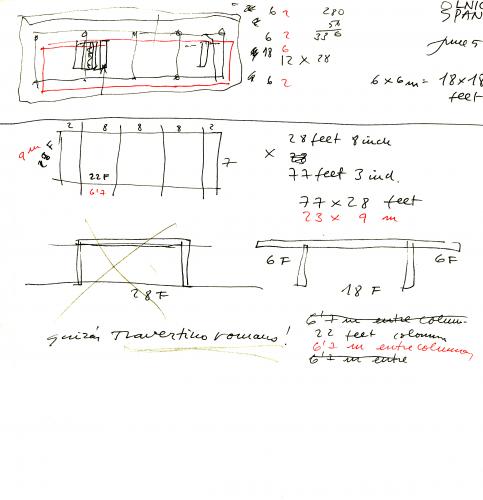 OLNIC
SPAN
June 5
6 2
280
6 2
56
336
18 6
12 x 28
6 2
6 x 6 m = 18 x 18
feet
2 8 8 8 2
9 m
28 F
22 F
6'7
7
x 28 feet 8 inch
77 feet 3 ind.
77 x 28 feet
23 x 9 m
28 F
6 F
6 F
18 F
quizás Travertino romano!
6'7 m entre colum.
22 feet colomn
6'7 m entre columnas
6'7 m entre